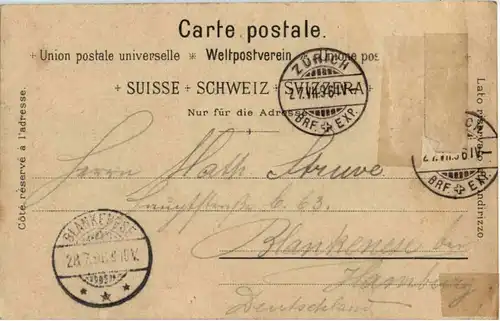 Carte postale.
Union postale universelle Weltpostverein Unione pos
SUISSE + SCHWEIZ + SVIZZERA
Nur für die Adresse
Côté réservé à l'adresse.
Lato
indirizzo
ZÜRICH
27.VII.96.IV-
BRF. EXP.
27.VII.96.IV-
BRF. EXP.
Herrn Math. Struve
Hauptstrasse C. 63.
Blankenese bei
Hamburg
Deutschland
BLANKENESE
28.7.96.